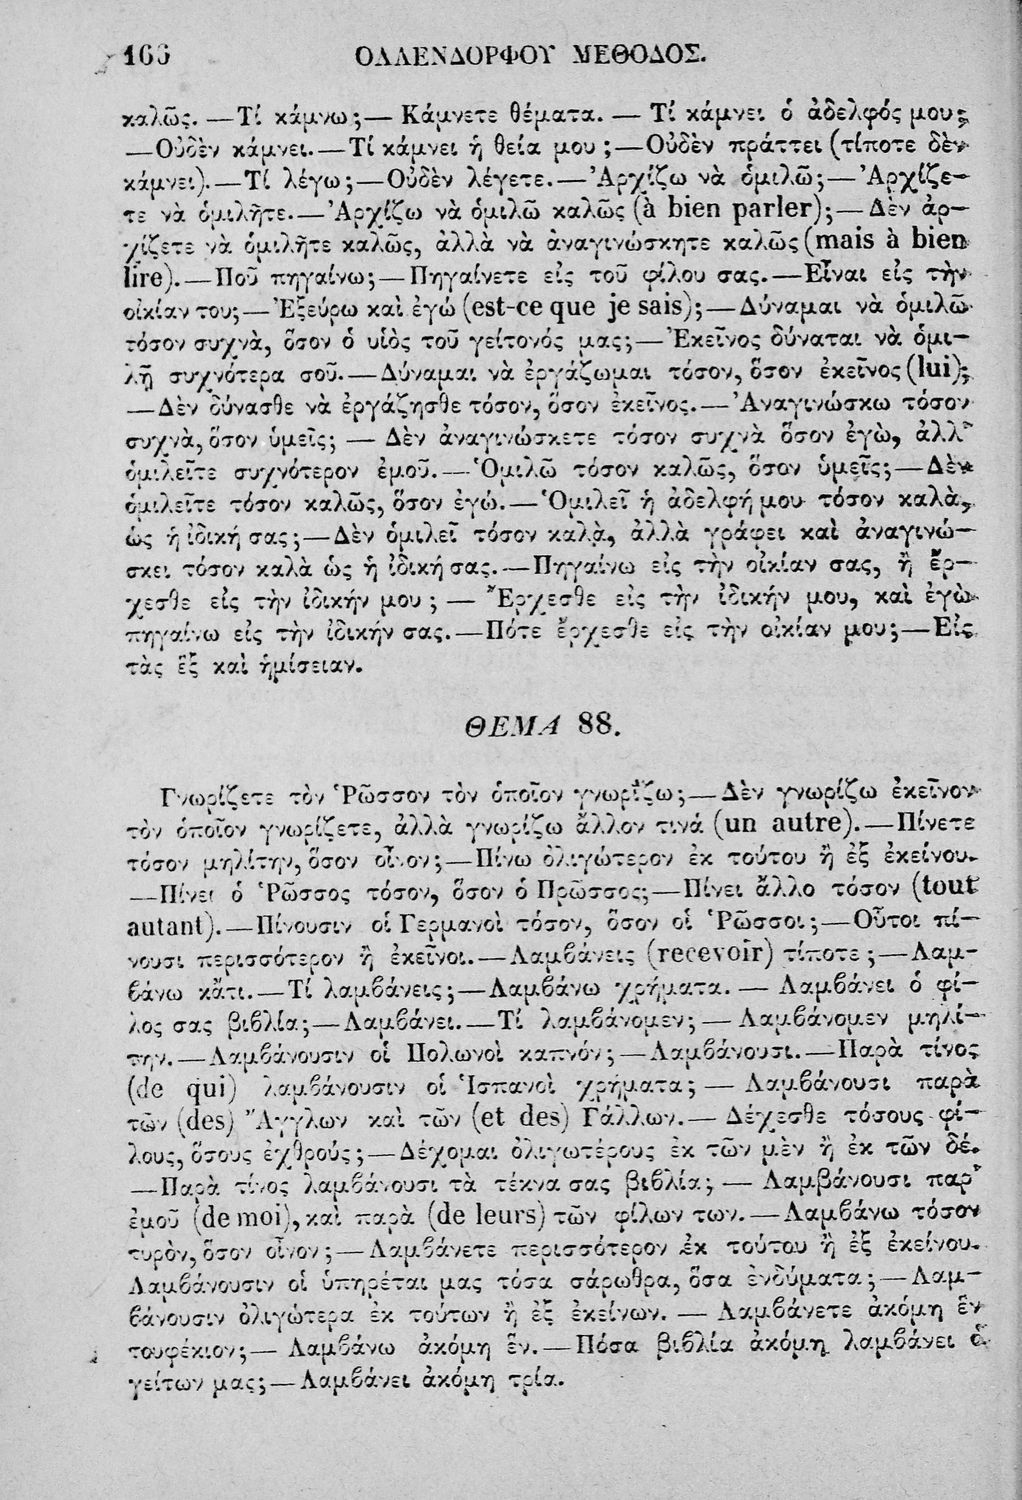 166 ΟΛΛΕΝΔΟΡΦΟΥ ΜΕΘΟΔΟΣ.
καλῶς. —Τί κάμνω;— Κάμνετε θέματα. — Τί κάμνει ὁ ἀδελφός μου;
—Οὐδὲν κάμνει.—Τί κάμνει ἡ θεία μου ;—Οὐδὲν πράττει (τίποτε δὲν
κάμνει).—Τί λέγω;—Οὐδὲν λέγετε.—Ἀρχίζω νὰ ὁμιλῶ;—Ἀρχίζε-
τε νὰ ὁμιλῆτε.—Ἀρχίζω νὰ ὁμιλῶ καλῶς (à bien parler);—Δὲν ἀρ-
χίζετε νὰ ὁμιλῆτε καλῶς, ἀλλὰ νὰ ἀναγινώσκητε καλῶς (mais à bien
lire).—Ποῦ πηγαίνω;—Πηγαίνετε εἰς τοῦ φίλου σας.—Εἶναι εἰς τὴν
οἰκίαν του;—Ἐξεύρω καὶ ἐγώ (est-ce que je sais);—Δύναμαι νὰ ὁμιλῶ
τόσον συχνὰ, ὅσον ὁ υἱὸς τοῦ γείτονός μας;—Ἐκεῖνος δύναται νὰ ὁμι-
λῇ συχνότερα σοῦ.—Δύναμαι νὰ ἐργάζωμαι τόσον, ὅσον ἐκεῖνος (lui);
—Δὲν δύνασθε νὰ ἐργάζησθε τόσον, ὅσον ἐκεῖνος.—Ἀναγινώσκω τόσον
συχνὰ, ὅσον ὑμεῖς; — Δὲν ἀναγινώσκετε τόσον συχνὰ ὅσον ἐγὼ, ἀλλ'
ὁμιλεῖτε συχνότερον ἐμοῦ.—Ὁμιλῶ τόσον καλῶς, ὅσον ὑμεῖς;—Δὲν
ὁμιλεῖτε τόσον καλῶς, ὅσον ἐγώ.—Ὁμιλεῖ ἡ ἀδελφή μου τόσον καλὰ,
ὡς ἡ ἰδική σας;—Δὲν ὁμιλεῖ τόσον καλὰ, ἀλλὰ γράφει καὶ ἀναγινώ-
σκει τόσον καλὰ ὡς ἡ ἰδική σας.—Πηγαίνω εἰς τὴν οἰκίαν σας, ἢ ἔρ-
χεσθε εἰς τὴν ἰδικήν μου ; — Ἔρχεσθε εἰς τὴν ἰδικήν μου, καὶ ἐγὼ
πηγαίνω εἰς τὴν ἰδικήν σας.—Πότε ἔρχεσθε εἰς τὴν οἰκίαν μου;—Εἰς
τὰς ἓξ καὶ ἡμίσειαν.
ΘΕΜΑ 88.
Γνωρίζετε τὸν Ῥῶσσον τὸν ὁποῖον γνωρίζω;—Δὲν γνωρίζω ἐκεῖνον
τὸν ὁποῖον γνωρίζετε, ἀλλὰ γνωρίζω ἄλλον τινά (un autre).—Πίνετε
τόσον μηλίτην, ὅσον οἶνον;—Πίνω ὀλιγώτερον ἐκ τούτου ἢ ἐξ ἐκείνου.
—Πίνει ὁ Ῥῶσσος τόσον, ὅσον ὁ Πρῶσσος;—Πίνει ἄλλο τόσον (tout
autant).—Πίνουσιν οἱ Γερμανοὶ τόσον, ὅσον οἱ Ῥῶσσοι;—Οὗτοι πί-
νουσι περισσότερον ἢ ἐκεῖνοι.—Λαμβάνεις (recevoir) τίποτε ;—Λαμ-
βάνω κἄτι.—Τί λαμβάνεις;—Λαμβάνω χρήματα. — Λαμβάνει ὁ φί-
λος σας βιβλία;—Λαμβάνει.—Τί λαμβάνομεν;—Λαμβάνομεν μηλί-
την.—Λαμβάνουσιν οἱ Πολωνοὶ καπνόν;—Λαμβάνουσι.—Παρὰ τίνος
(de qui) λαμβάνουσιν οἱ Ἱσπανοὶ χρήματα; — Λαμβάνουσι παρὰ
τῶν (des) Ἄγγλων καὶ τῶν (et des) Γάλλων.— Δέχεσθε τόσους φί-
λους, ὅσους ἐχθρούς;—Δέχομαι ὀλιγωτέρους ἐκ τῶν μὲν ἢ ἐκ τῶν δέ.
—Παρὰ τίνος λαμβάνουσι τὰ τέκνα σας βιβλία; — Λαμβάνουσι παρ'
ἐμοῦ (de moi), καὶ παρὰ (de leurs) τῶν φίλων των.—Λαμβάνω τόσον
τυρὸν, ὅσον οἶνον;—Λαμβάνετε περισσότερον ἐκ τούτου ἢ ἐξ ἐκείνου.
Λαμβάνουσιν οἱ ὑπηρέται μας τόσα σάρωθρα, ὅσα ἐνδύματα;—Λαμ-
βάνουσιν ὀλιγώτερα ἐκ τούτων ἢ ἐξ ἐκείνων. — Λαμβάνετε ἀκόμη ἓν
τουφέκιον;— Λαμβάνω ἀκόμη ἕν.—Πόσα βιβλία ἀκόμη λαμβάνει ὁ
γείτων μας;—Λαμβάνει ἀκόμη τρία.